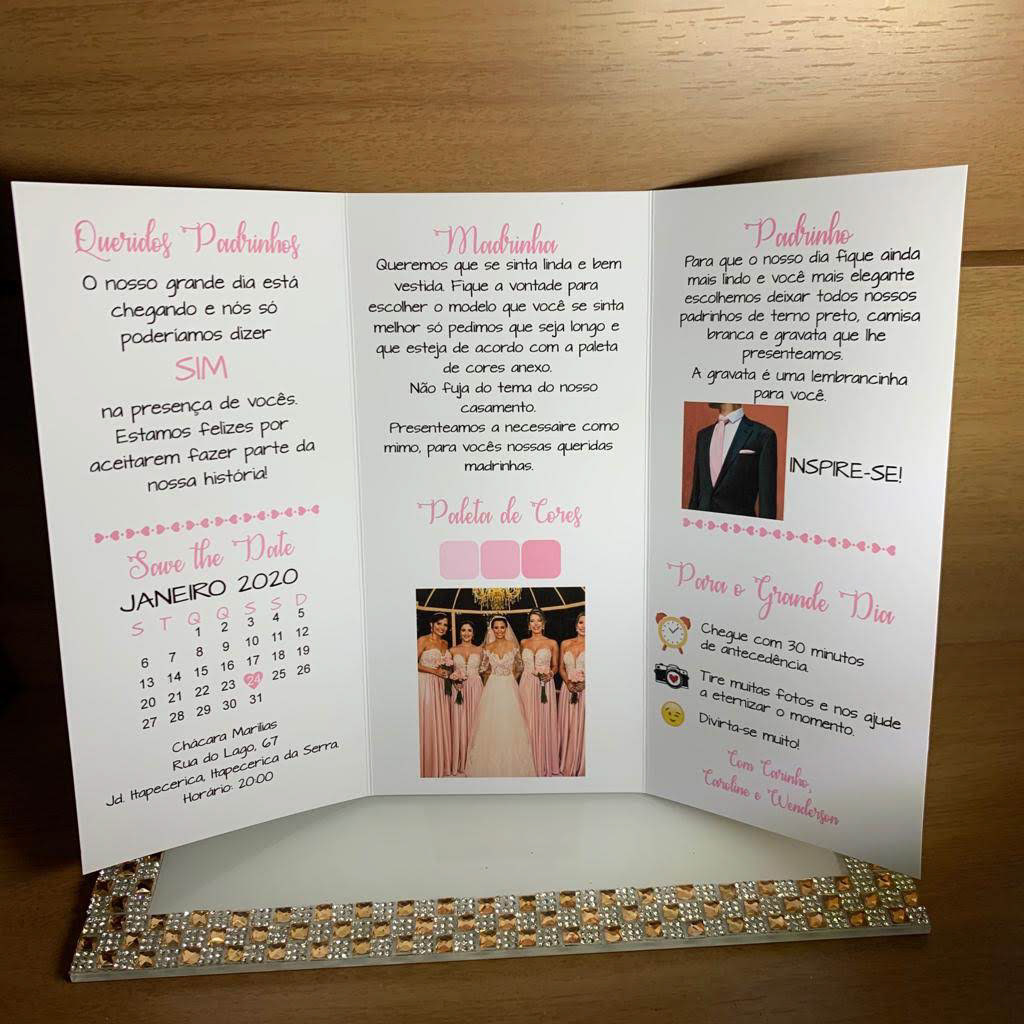 Queridos Padrinhos
O nosso grande dia está
chegando e nós só
poderíamos dizer
SIM
na presença de vocês.
Estamos felizes por
aceitarem fazer parte da
nossa história!
Save the Date
JANEIRO 2020
S T Q Q S S D
1 2 3 4 5
6 7 8 9 10 11 12
13 14 15 16 17 18 19
20 21 22 23 24 25 26
27 28 29 30 31
Chácara Marilias
Rua do Lago, 67
Jd. Itapecerica, Itapecerica da Serra
Horário: 20:00
Madrinha
Queremos que se sinta linda e bem
vestida. Fique a vontade para
escolher o modelo que você se sinta
melhor só pedimos que seja longo e
que esteja de acordo com a paleta
de cores anexo.
Não fuja do tema do nosso
casamento.
Presenteamos a necessaire como
mimo, para vocês nossas queridas
madrinhas.
Paleta de Cores
Padrinho
Para que o nosso dia fique ainda
mais lindo e você mais elegante
escolhemos deixar todos nossos
padrinhos de terno preto, camisa
branca e gravata que lhe
presenteamos.
A gravata é uma lembrancinha
para você.
INSPIRE-SE!
Para o Grande Dia
Chegue com 30 minutos
de antecedência.
Tire muitas fotos e nos ajude
a eternizar o momento.
Divirta-se muito!
Com Carinho,
Caroline e Wenderson